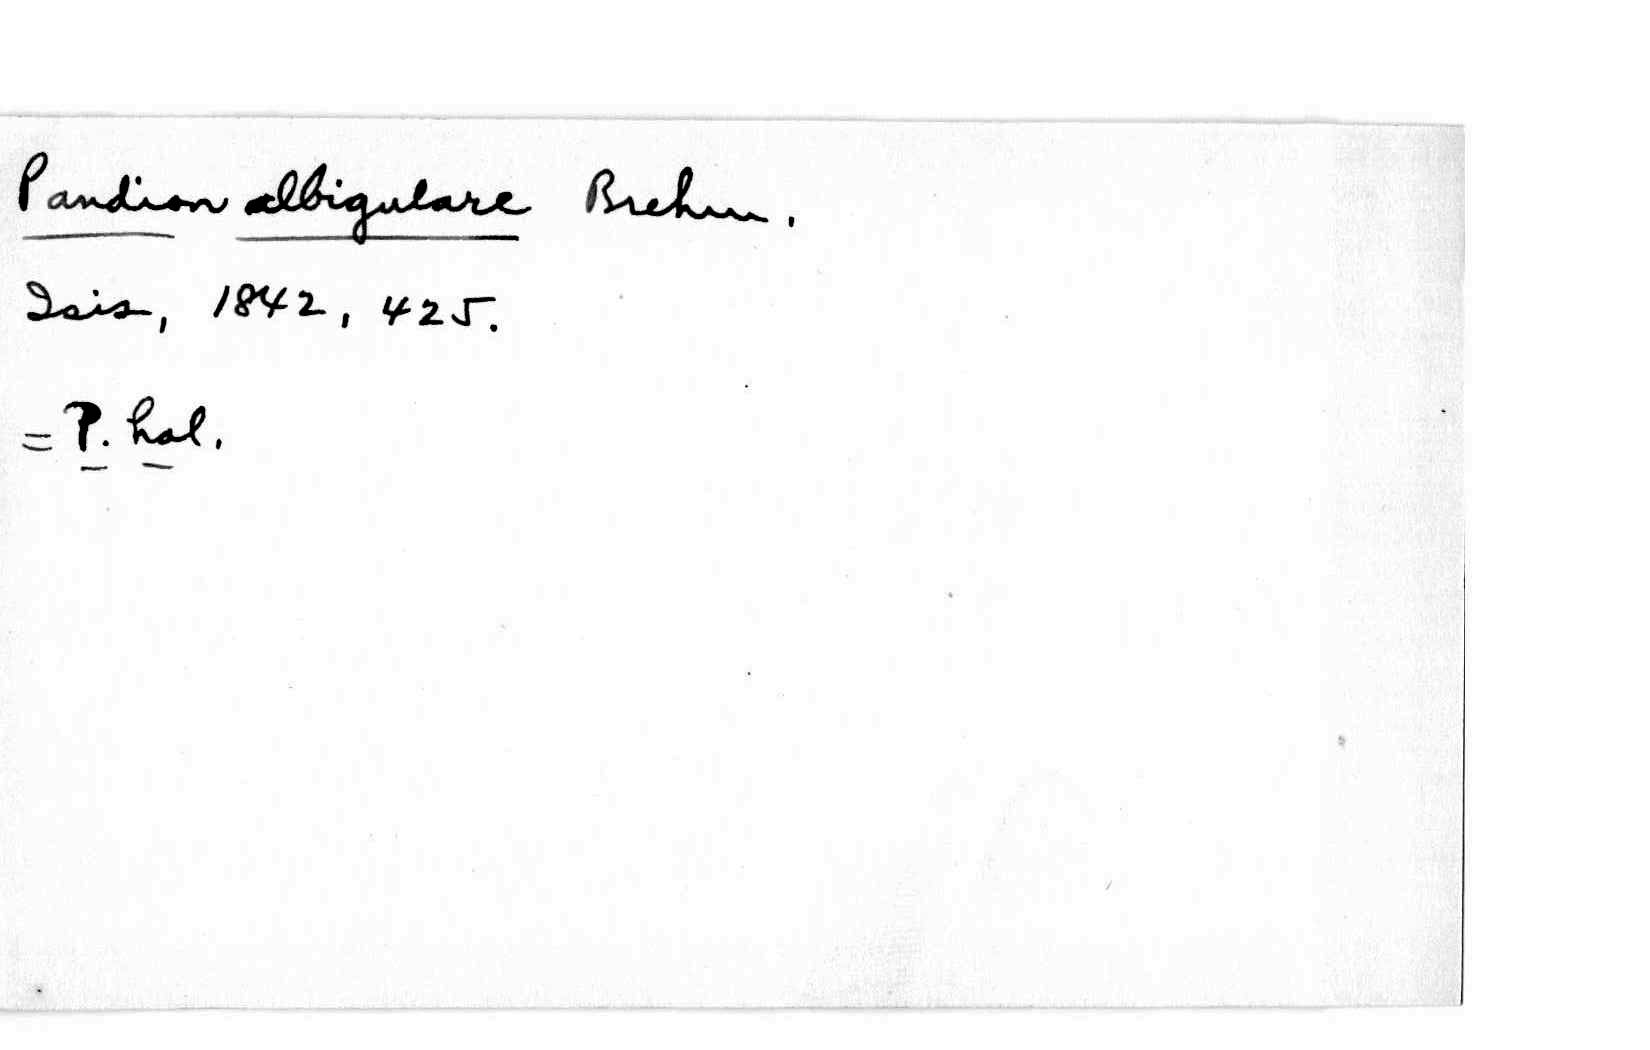 Pandion albigulare Brehm.
Isis, 1842, 425.
= P. hal.